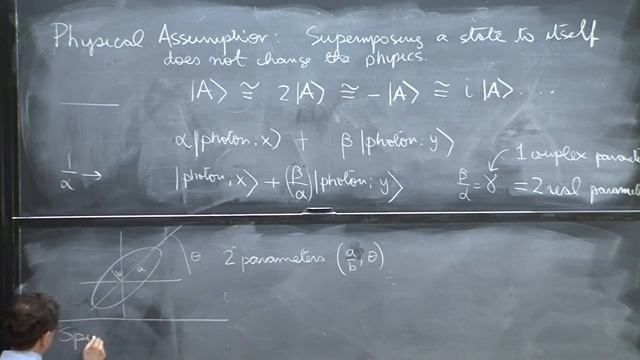 Physical Assumption: Superposing a state to itself
does not change the physics.
|A⟩ ≅ 2|A⟩ ≅ -|A⟩ ≅ i|A⟩ ....
α|photon; x⟩ + β|photon; y⟩
1/α → |photon, x⟩ + (β/α)|photon; y⟩
1 complex
β/α = γ = 2 real
θ 2 parameters (a/b, θ)
b a